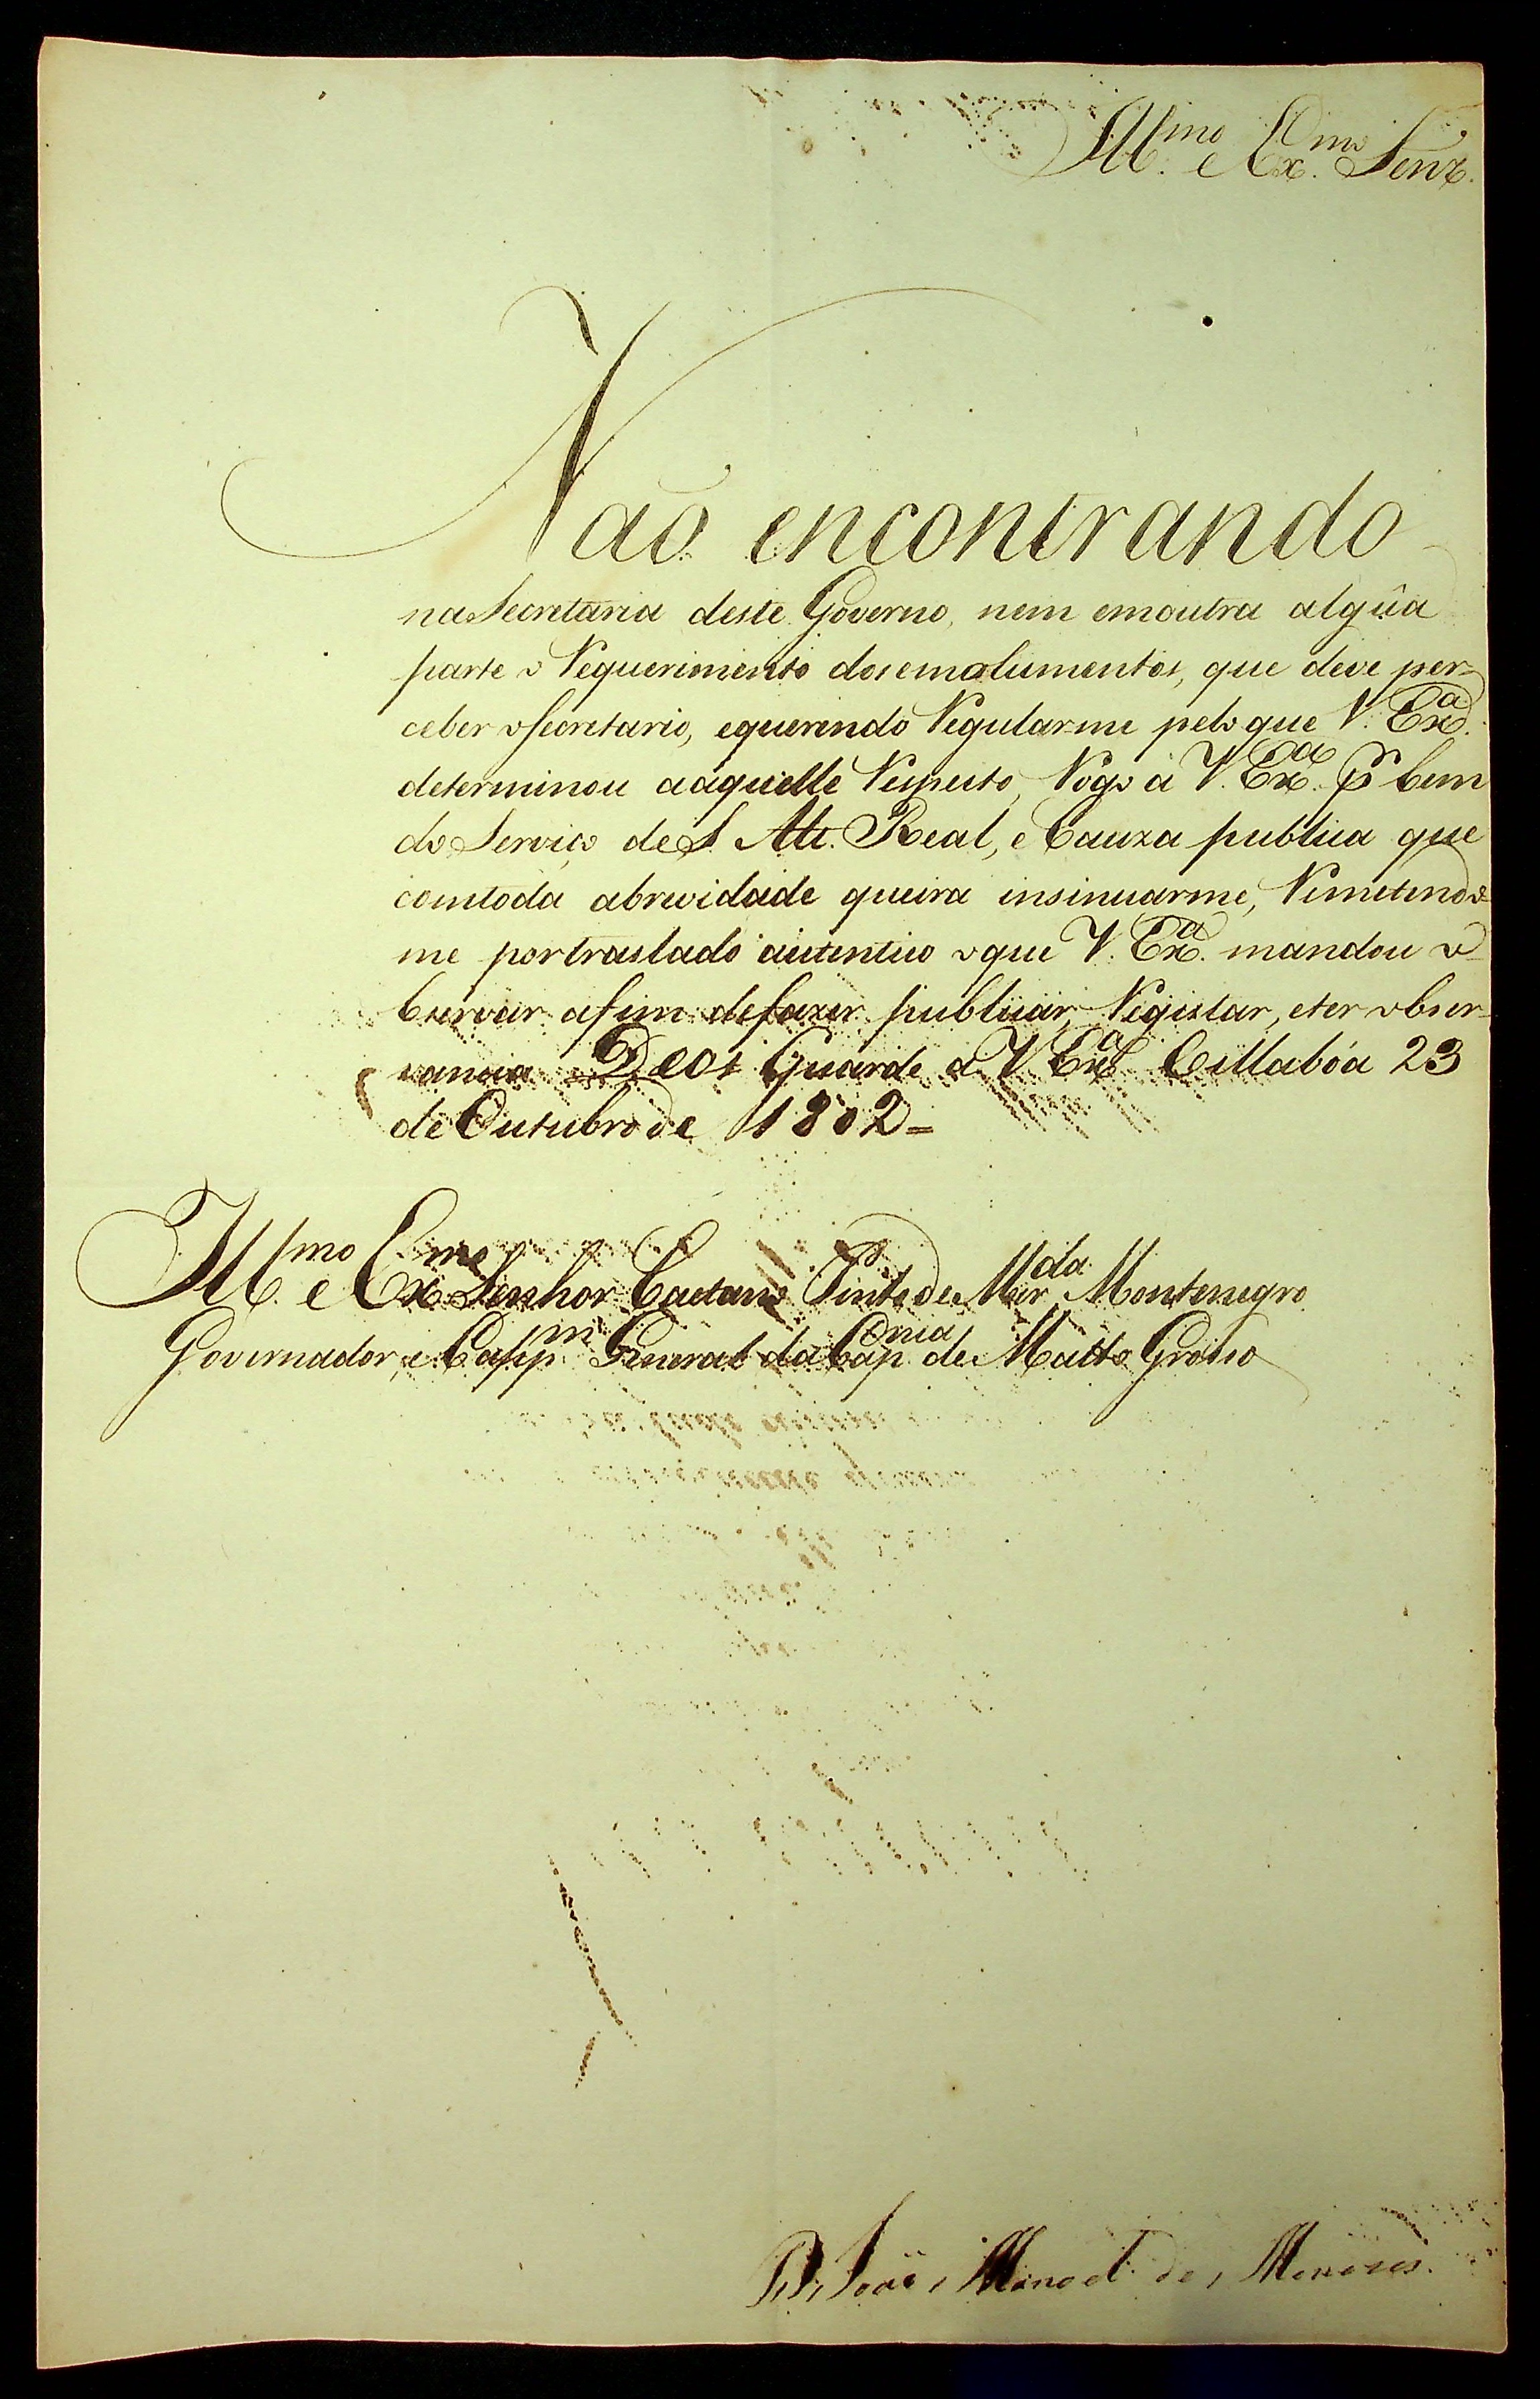 Ill.mo e Ex.mo Senr.
Não encontrando
na Secretaria deste Governo, nem emoutra algûa
parte o Requerimento dos emolumentos, que deve per-
ceber o Secretario, equerendo Regularme pelo que V. Ex.a
determinou aáquelle Respeito, Rogo a V. Ex.a p.r bem
do Serviço de S. Alt. Real, e Cauza publica que
comtoda abrevidade queira insinuarme, Remetendo
me portraslado autentico oque V. Ex.a mandou o
bservar afim defazer publicar, Registar, eter obser-
vancia Deos Guarde a V. Ex.a Villabóa 23
de Outubro de 1802=
Ill.mo e Ex.mo Senhor Caetano Pinto de Mir.da Montenegro
Governador, e Capp.m General da Cap.nia de Matto Grosso
D. João Manoel de Menezes.